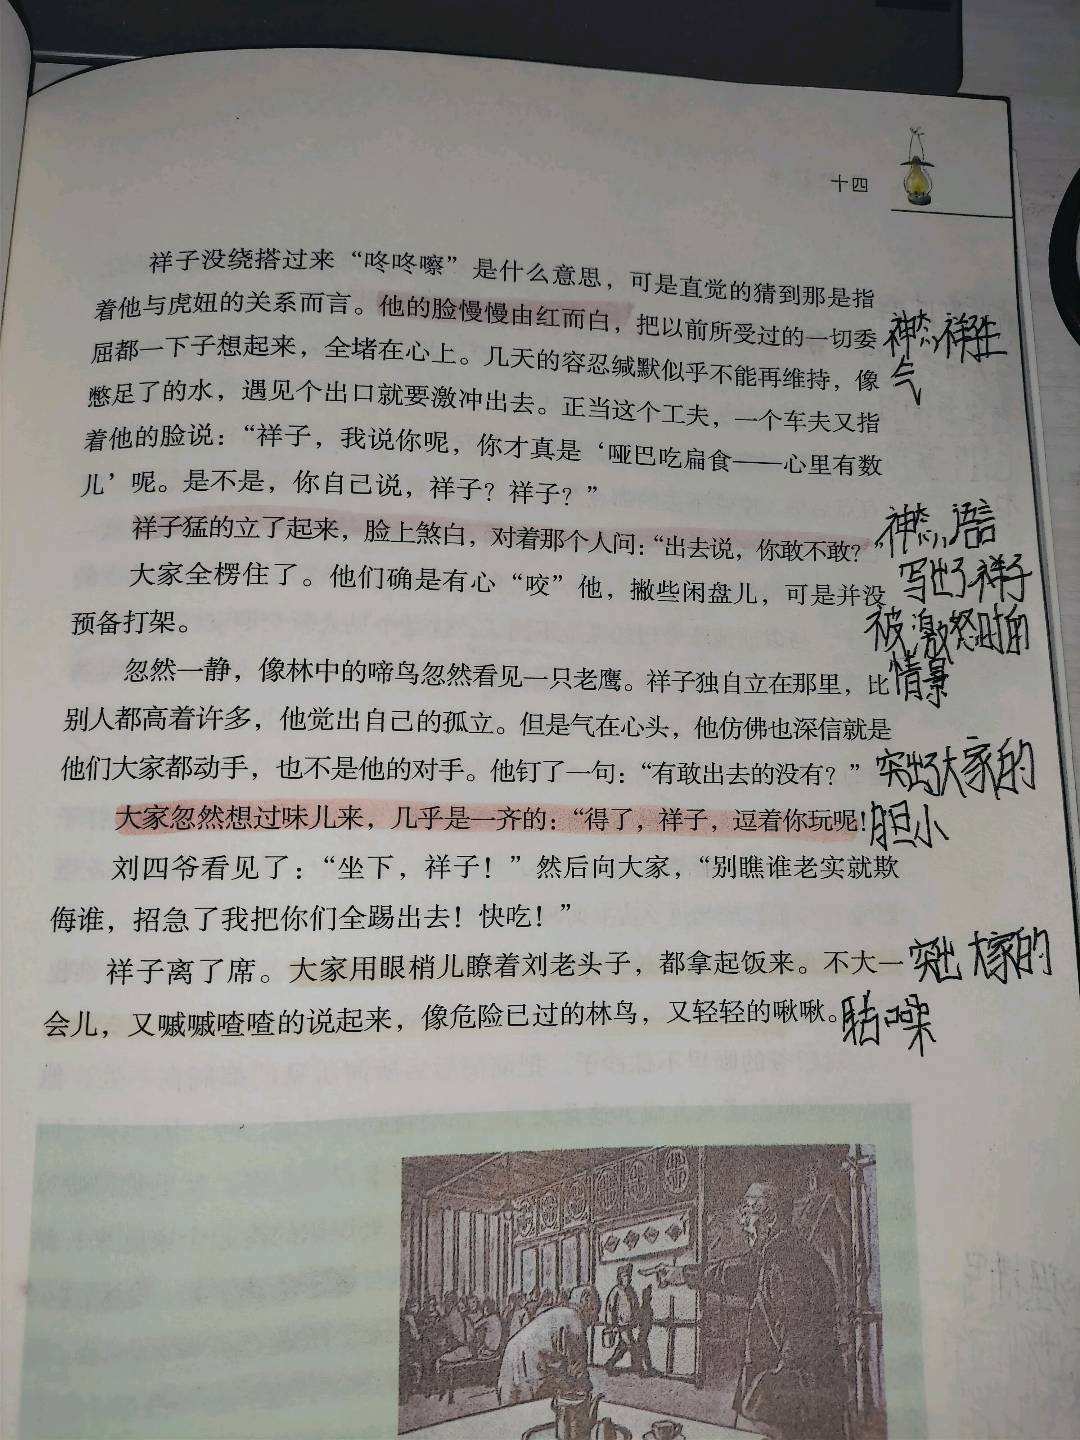 十四
祥子没绕搭过来“咚咚嚓”是什么意思，可是直觉的猜到那是指
着他与虎妞的关系而言。他的脸慢慢由红而白，把以前所受过的一切委
屈都一下子想起来，全堵在心上。几天的容忍缄默似乎不能再维持，像
憋足了的水，遇见个出口就要激冲出去。正当这个工夫，一个车夫又指
着他的脸说：“祥子，我说你呢，你才真是‘哑巴吃扁食——心里有数
儿’呢。是不是，你自己说，祥子？祥子？”
祥子猛的立了起来，脸上煞白，对着那个人问：“出去说，你敢不敢？”
大家全楞住了。他们确是有心“咬”他，撇些闲盘儿，可是并没
预备打架。
忽然一静，像林中的啼鸟忽然看见一只老鹰。祥子独自立在那里，比
别人都高着许多，他觉出自己的孤立。但是气在心头，他仿佛也深信就是
他们大家都动手，也不是他的对手。他钉了一句：“有敢出去的没有？”
大家忽然想过味儿来，几乎是一齐的：“得了，祥子，逗着你玩呢！
刘四爷看见了：“坐下，祥子！”然后向大家，“别瞧谁老实就欺
侮谁，招急了我把你们全踢出去！快吃！”
祥子离了席。大家用眼梢儿瞭着刘老头子，都拿起饭来。不大一
会儿，又嘁嘁喳喳的说起来，像危险已过的林鸟，又轻轻的啾啾。
神态，祥子生
气
神态，语言
写出了祥子
被激怒时的
情景
突出了大家的
胆小
突出大家的
聒噪